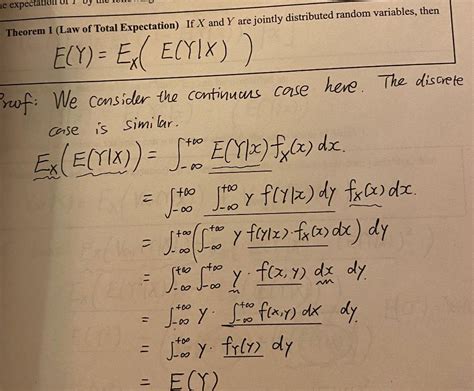 expectation of
Theorem 1 (Law of Total Expectation) If X and Y are jointly distributed random variables, then
E(Y) = E_X( E(Y|X) )
Proof: We consider the continuous case here. The discrete
case is similar.
E_X(E(Y|X)) = ∫_{-∞}^{+∞} E(Y|x) f_X(x) dx.
= ∫_{-∞}^{+∞} ∫_{-∞}^{+∞} y f(y|x) dy f_X(x) dx.
= ∫_{-∞}^{+∞} (∫_{-∞}^{+∞} y f(y|x)·f_X(x) dx) dy
= ∫_{-∞}^{+∞} ∫_{-∞}^{+∞} y · f(x,y) dx dy.
= ∫_{-∞}^{+∞} y · ∫_{-∞}^{+∞} f(x,y) dx dy.
= ∫_{-∞}^{+∞} y · f_Y(y) dy
= E(Y)